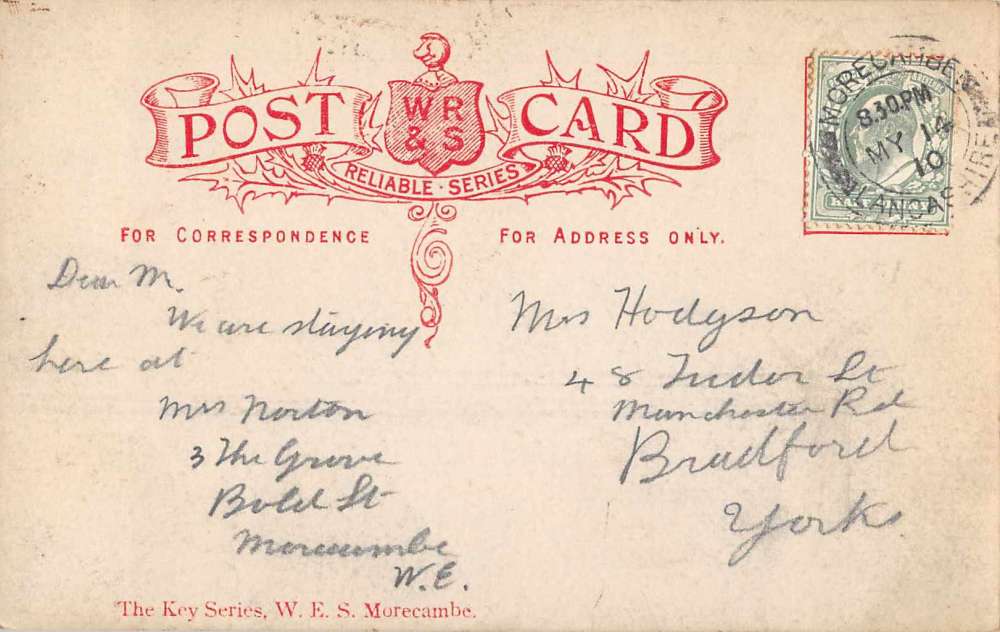 POST CARD
WR
& S
RELIABLE · SERIES
FOR CORRESPONDENCE
FOR ADDRESS ONLY.
MORECAMBE
8.30 PM
MY 14
10
Dear M.
We are staying
here at
Mrs Norton
3 The Grove
Bold St
Morecambe
W.E.
Mrs Hodgson
48 Tudor St
Manchester Rd
Bradford
Yorks
The Key Series, W. E. S. Morecambe.